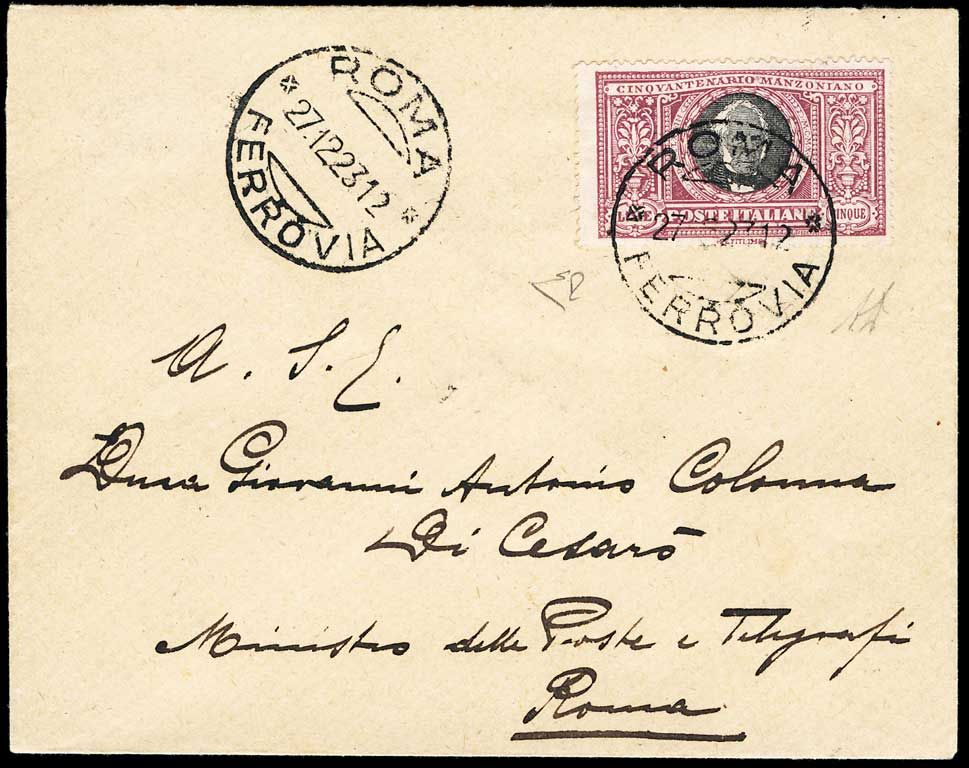 ROMA
27.12.23 12
FERROVIA
CINQVANTENARIO MANZONIANO
LIRE POSTE ITALIANE CINQUE
ROMA
FERROVIA
A. S. E.
Duca Giovanni Antonio Colonna
Di Cesarò
Ministro delle Poste e Telegrafi
Roma